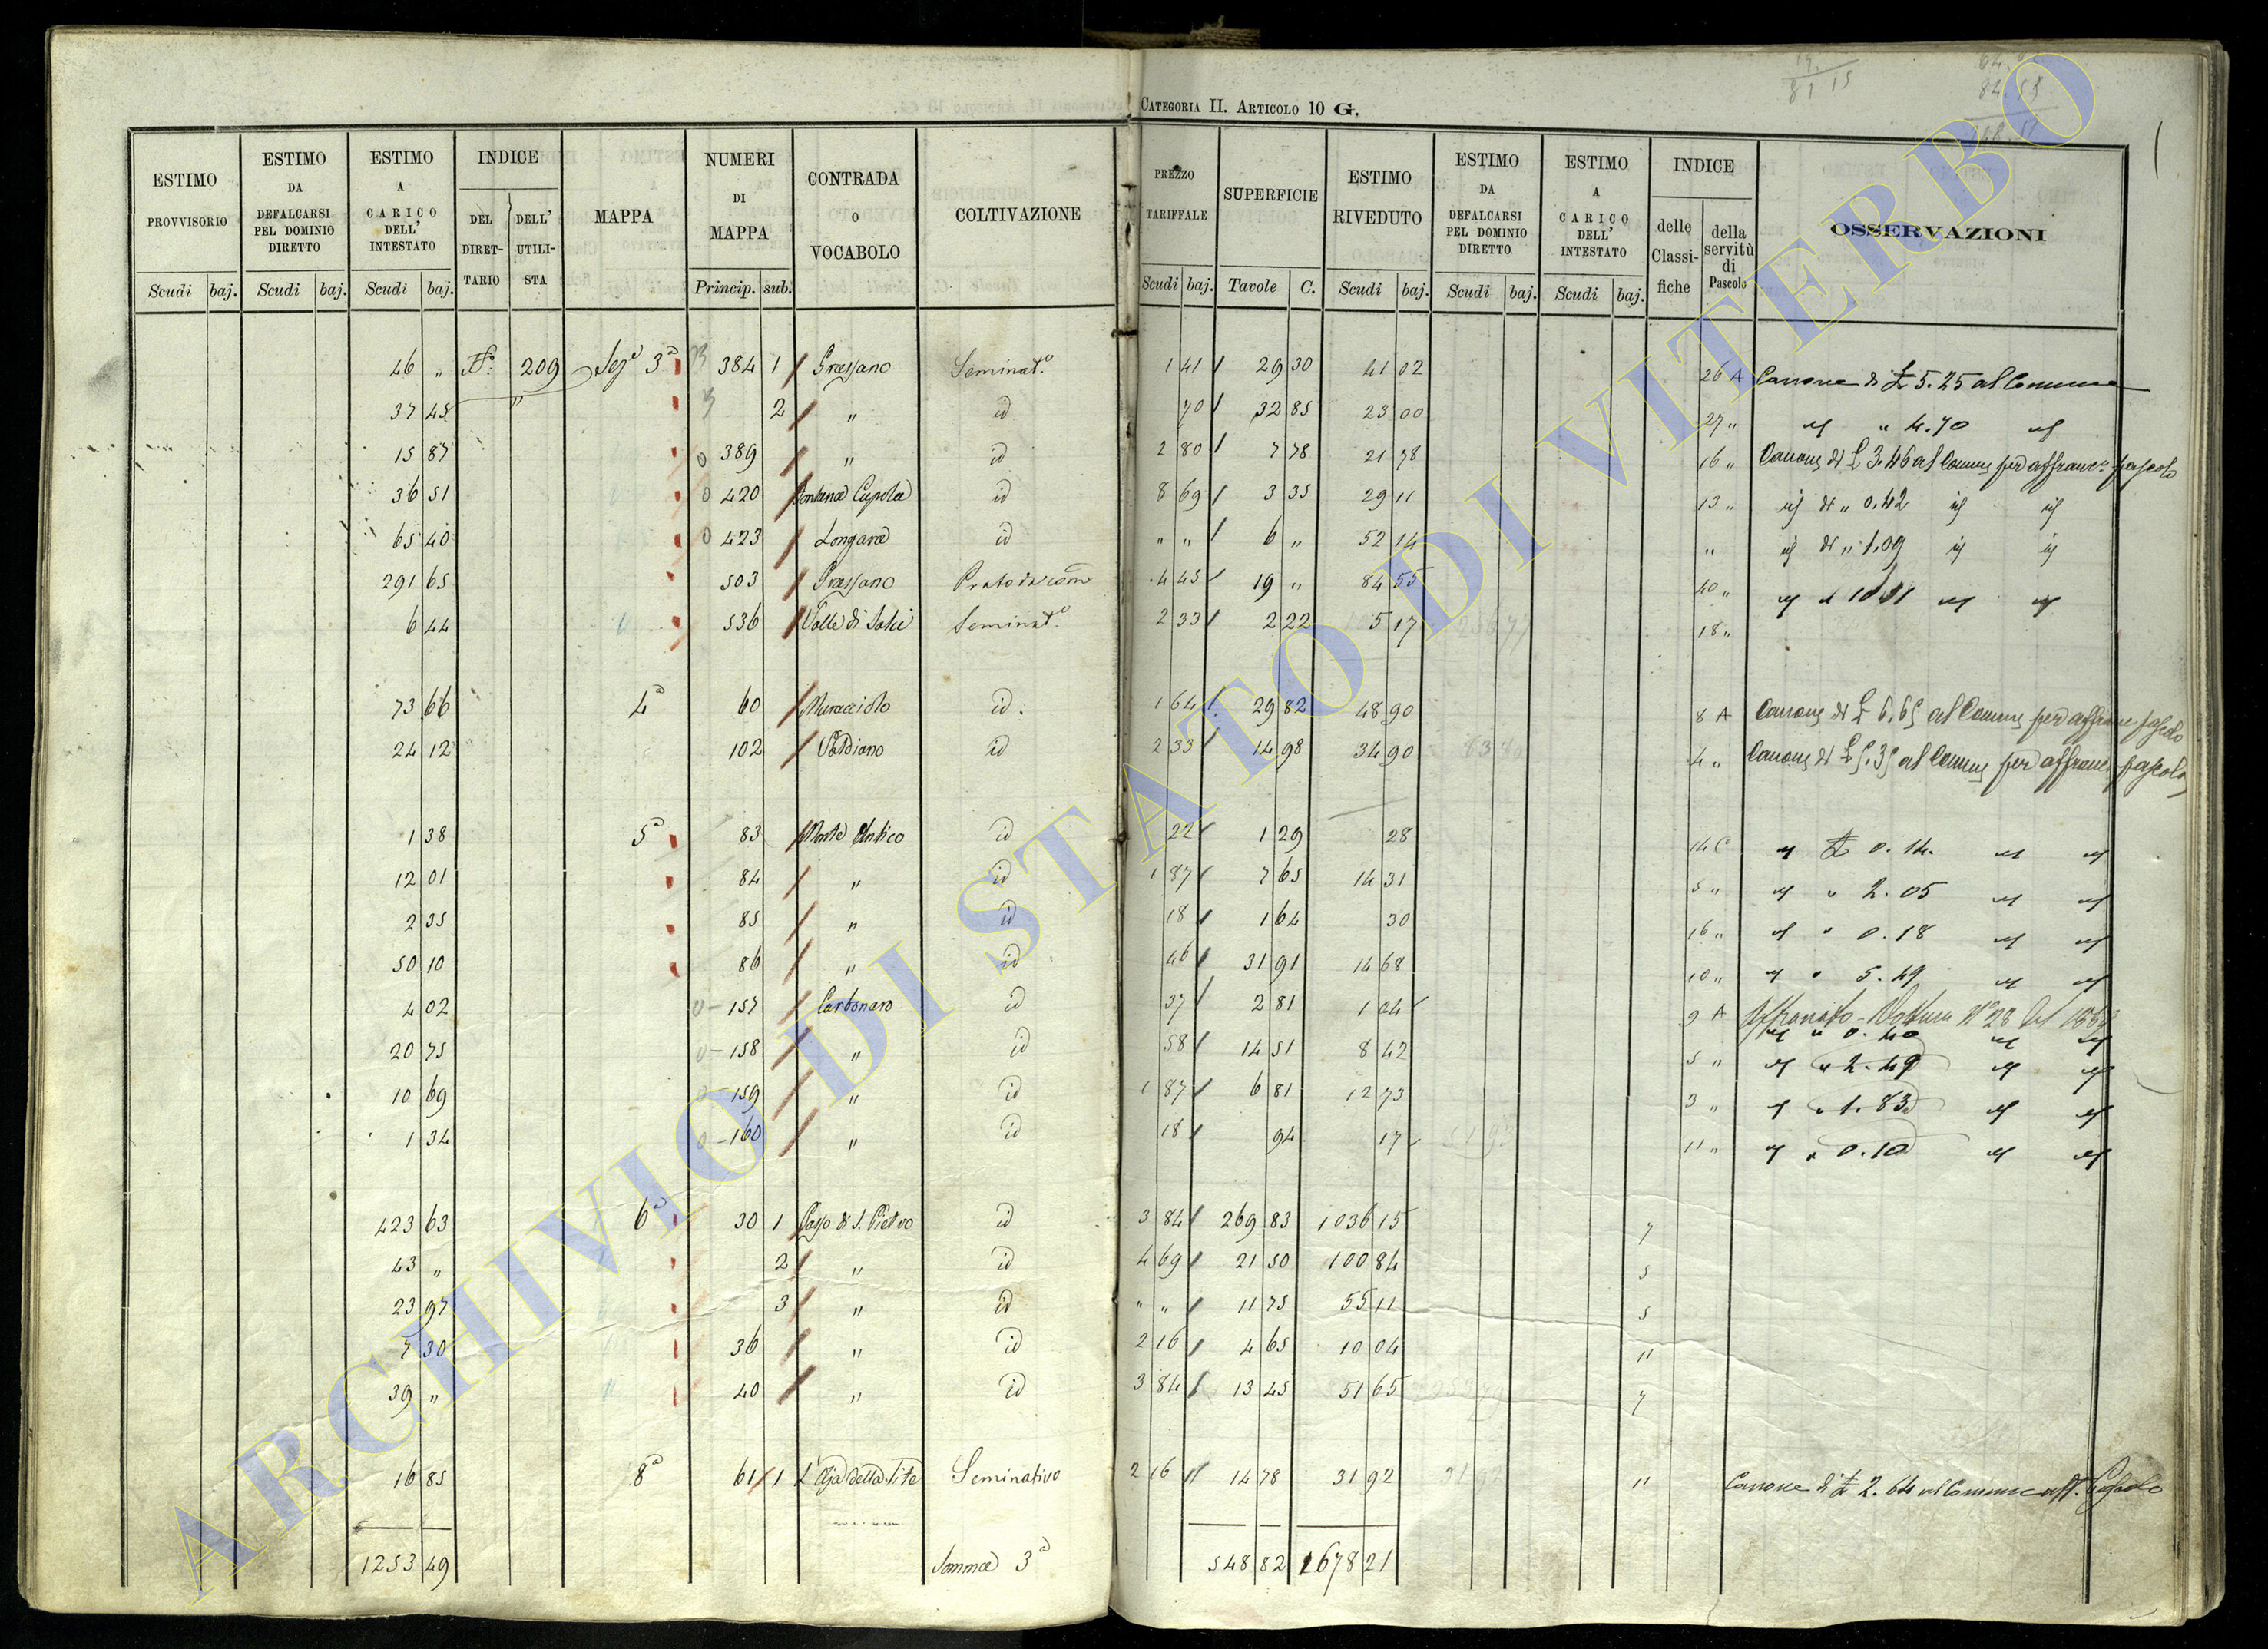 CATEGORIA II. ARTICOLO 10 G.
ESTIMO PROVVISORIO
ESTIMO DA DEFALCARSI PEL DOMINIO DIRETTO
ESTIMO A CARICO DELL' INTESTATO
INDICE
DEL DIRETTARIO
DELL' UTILISTA
MAPPA
NUMERI DI MAPPA
CONTRADA O VOCABOLO
COLTIVAZIONE
PREZZO TARIFFALE
SUPERFICIE
ESTIMO RIVEDUTO
ESTIMO DA DEFALCARSI PEL DOMINIO DIRETTO
ESTIMO A CARICO DELL' INTESTATO
INDICE
delle Classifiche
della servitù di Pascolo
OSSERVAZIONI
Scudi baj. Scudi baj. Scudi baj. Princip. sub. Scudi baj. Tavole C. Scudi baj. Scudi baj. Scudi baj.
46 " 209 3ª 384 1 Grassano Seminat.º 1 41 29 30 41 02 26 A Canone di £ 5.25 al Comune
37 45 " 2 " id 70 32 85 23 00 27 " id " 4.70 id
15 87 389 " id 2 80 7 78 21 78 16 " Canone di £ 3.46 al Comune per affranc. pascolo
36 51 420 Fontana Cupola id 8 69 3 35 29 11 13 " id di " 0.42 id id
65 40 423 Longara id " " 6 " 52 14 " id di " 1.09 id id
291 65 503 Grassano Prato 4 45 19 " 84 55 40 " id id id
6 44 536 Valle di Salci Seminat.º 2 33 2 22 5 17 18 "
73 66 4ª 60 Muracciolo id. 1 64 29 82 48 90 8 A Canone di £ 6.65 al Comune per affranc pascolo
24 12 102 Valdiano id 2 33 14 98 34 90 4 " Canone di £ 5.35 al Comune per affranc pascolo
1 38 5ª 83 Monte Antico id 22 1 29 28 14 C id £ 0.14. id id
12 01 84 " id 1 87 7 65 14 31 5 " id " 2.05 id id
2 35 85 " id 18 1 64 30 16 " id " 0.18 id id
50 10 86 " id 46 31 91 14 68 10 " id " 5.49 id id
4 02 157 Carbonaro id 37 2 81 1 04 9 A Voltura Nº 28 del
id " 0.40 id id
20 75 158 " id 58 14 51 8 42 5 " id " 2.49 id id
10 69 159 " id 1 87 6 81 12 73 3 " id " 1.83 id id
1 34 160 " id 18 94 17 11 " id " 0.10 id id
423 63 6ª 30 1 Passo di S. Pietro id 3 84 269 83 1036 15 7
43 " 2 " id 4 69 21 50 100 84 5
23 97 3 " id " " 11 75 55 11 5
7 30 36 " id 2 16 4 65 10 04 11
39 " 40 " id 3 84 13 45 51 65 7
16 85 8ª 61 1 L'Aja della Vite Seminativo 2 16 14 78 31 92 11 Canone di £ 2.64 al Comune aff. Pascolo
1253 49 Somma 3ª 548 82 1678 21
ARCHIVIO DI STATO DI VITERBO